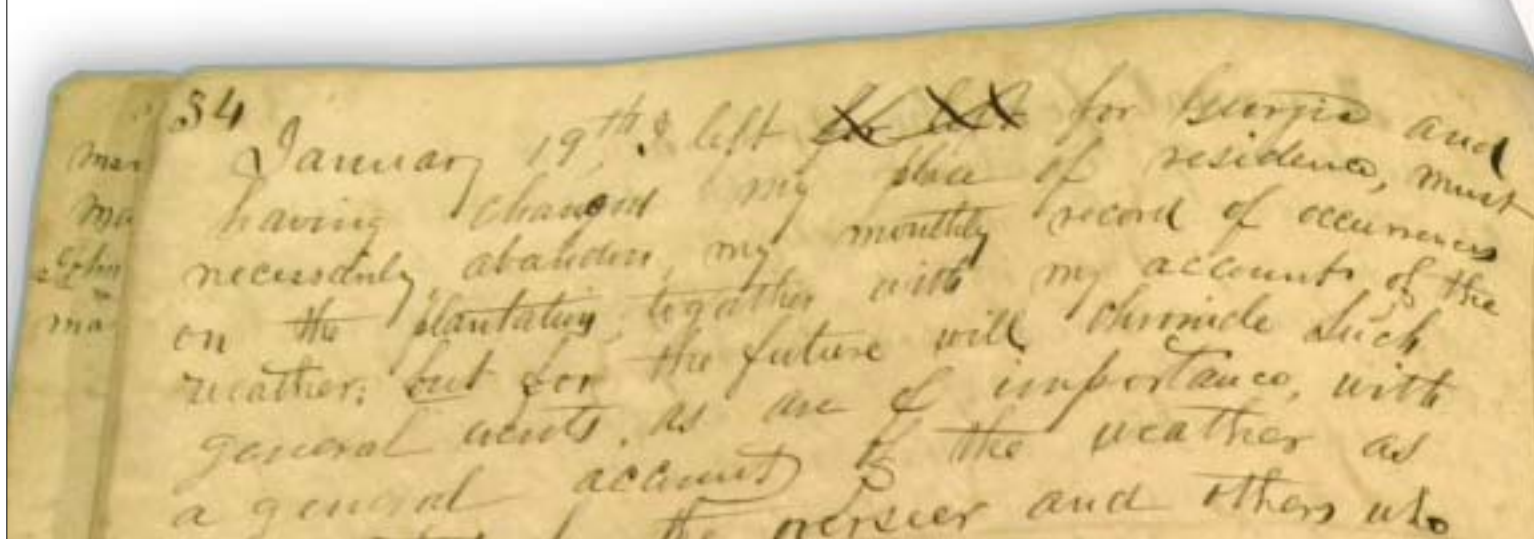 34
January 19th I left for Georgia and
having changed my place of residence, must
necessarily abandon my monthly record of occurrences
on the plantation, together with my accounts of the
weather; but for the future will chronicle such
general events, as are of importance, with
a general account of the weather as
the overseer and others who
mar
ma
John
ma